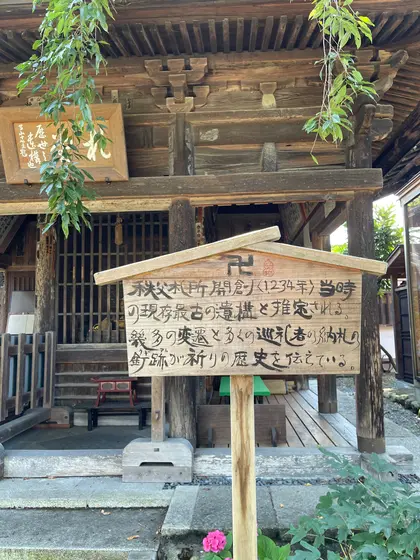 卍
秩父札所開創(1234年)当時
の現存最古の遺構と推定される。
幾多の変遷と多くの巡礼者の納札の
釘跡が祈りの歴史を伝えている。